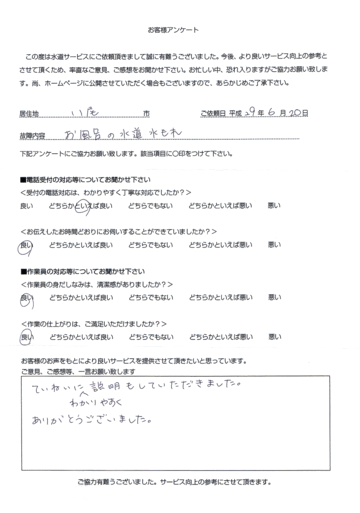 お客様アンケート
この度は水道サービスにご依頼頂きまして誠に有難うございました。今後、より良いサービス向上の参考と
させて頂くため、率直なご意見、ご感想をお聞かせ下さい。お忙しい中、恐れ入りますがご協力お願い致しま
す。尚、ホームページに公開させていただく場合もございますので、あらかじめご了承下さい。
居住地 市 ご依頼日 平成 29年 6月 20日
故障内容 お風呂の水道水もれ
下記アンケートにご協力お願い致します。該当項目に○印をつけて下さい。
■電話受付の対応等についてお聞かせ下さい
<受付の電話対応は、わかりやすく丁寧な対応でしたか?>
良い どちらかといえば良い どちらでもない どちらかといえば悪い 悪い
<お伝えしたお時間どおりにお伺いすることができていましたか?>
良い どちらかといえば良い どちらでもない どちらかといえば悪い 悪い
■作業員の対応等についてお聞かせ下さい
<作業員の身だしなみは、清潔感がありましたか?>
良い どちらかといえば良い どちらでもない どちらかといえば悪い 悪い
<作業の仕上がりは、ご満足いただけましたか?>
良い どちらかといえば良い どちらでもない どちらかといえば悪い 悪い
お客様のお声をもとにより良いサービスを提供させて頂きたいと思っています。
ご意見、ご感想等、一言お願い致します
ていねいに説明もしていただきました。
わかりやすく
ありがとうございました。
ご協力有難うございました。サービス向上の参考にさせて頂きます。